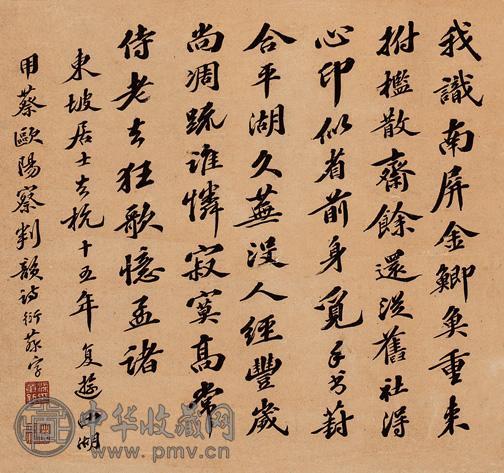 我識南屏金鯽魚重来
拊檻散齋餘還從舊社得
心印似省前身覓手書葑
合平湖久蕪沒人經豐歲
尚凋疏誰憐寂寞高常
侍老去狂歌憶孟諸
東坡居士去杭十五年复遊西湖
用蔡歐陽察判韻詩衍蔡字
中华收藏网
www.pmv.cn